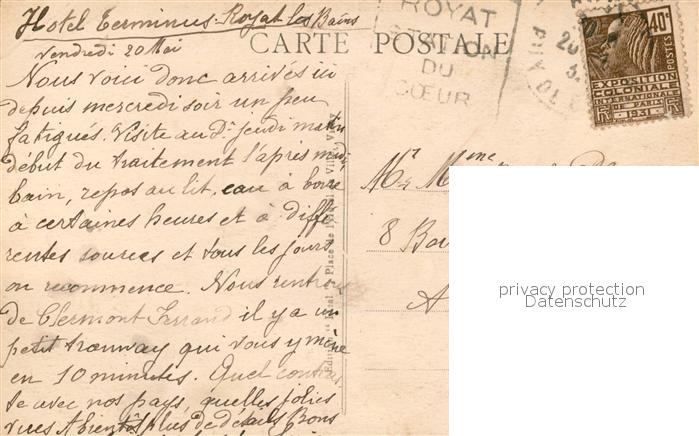 Hotel Terminus - Royat les Bains
Vendredi 20 Mai
CARTE POSTALE
Nous voici donc arrivés ici
depuis mercredi soir un peu
fatigués. Visite au Dr jeudi matin
début du traitement l'après midi
bain, repos au lit, eau à boire
à certaines heures et à diffé
rentes sources et tous les jours
on recommence. Nous rentrons
de Clermont Ferrand il y a un
petit tramway qui vous y mène
en 10 minutes. Quel contras
te avec nos pays, quelles jolies
vues A bientôt plus de détails Bons
ROYAT
STATION
DU
CŒUR
40c
POSTES
EXPOSITION
COLONIALE
INTERNATIONALE
PARIS
1931
Mr & Mme
8 Bou
A
privacy protection
Datenschutz